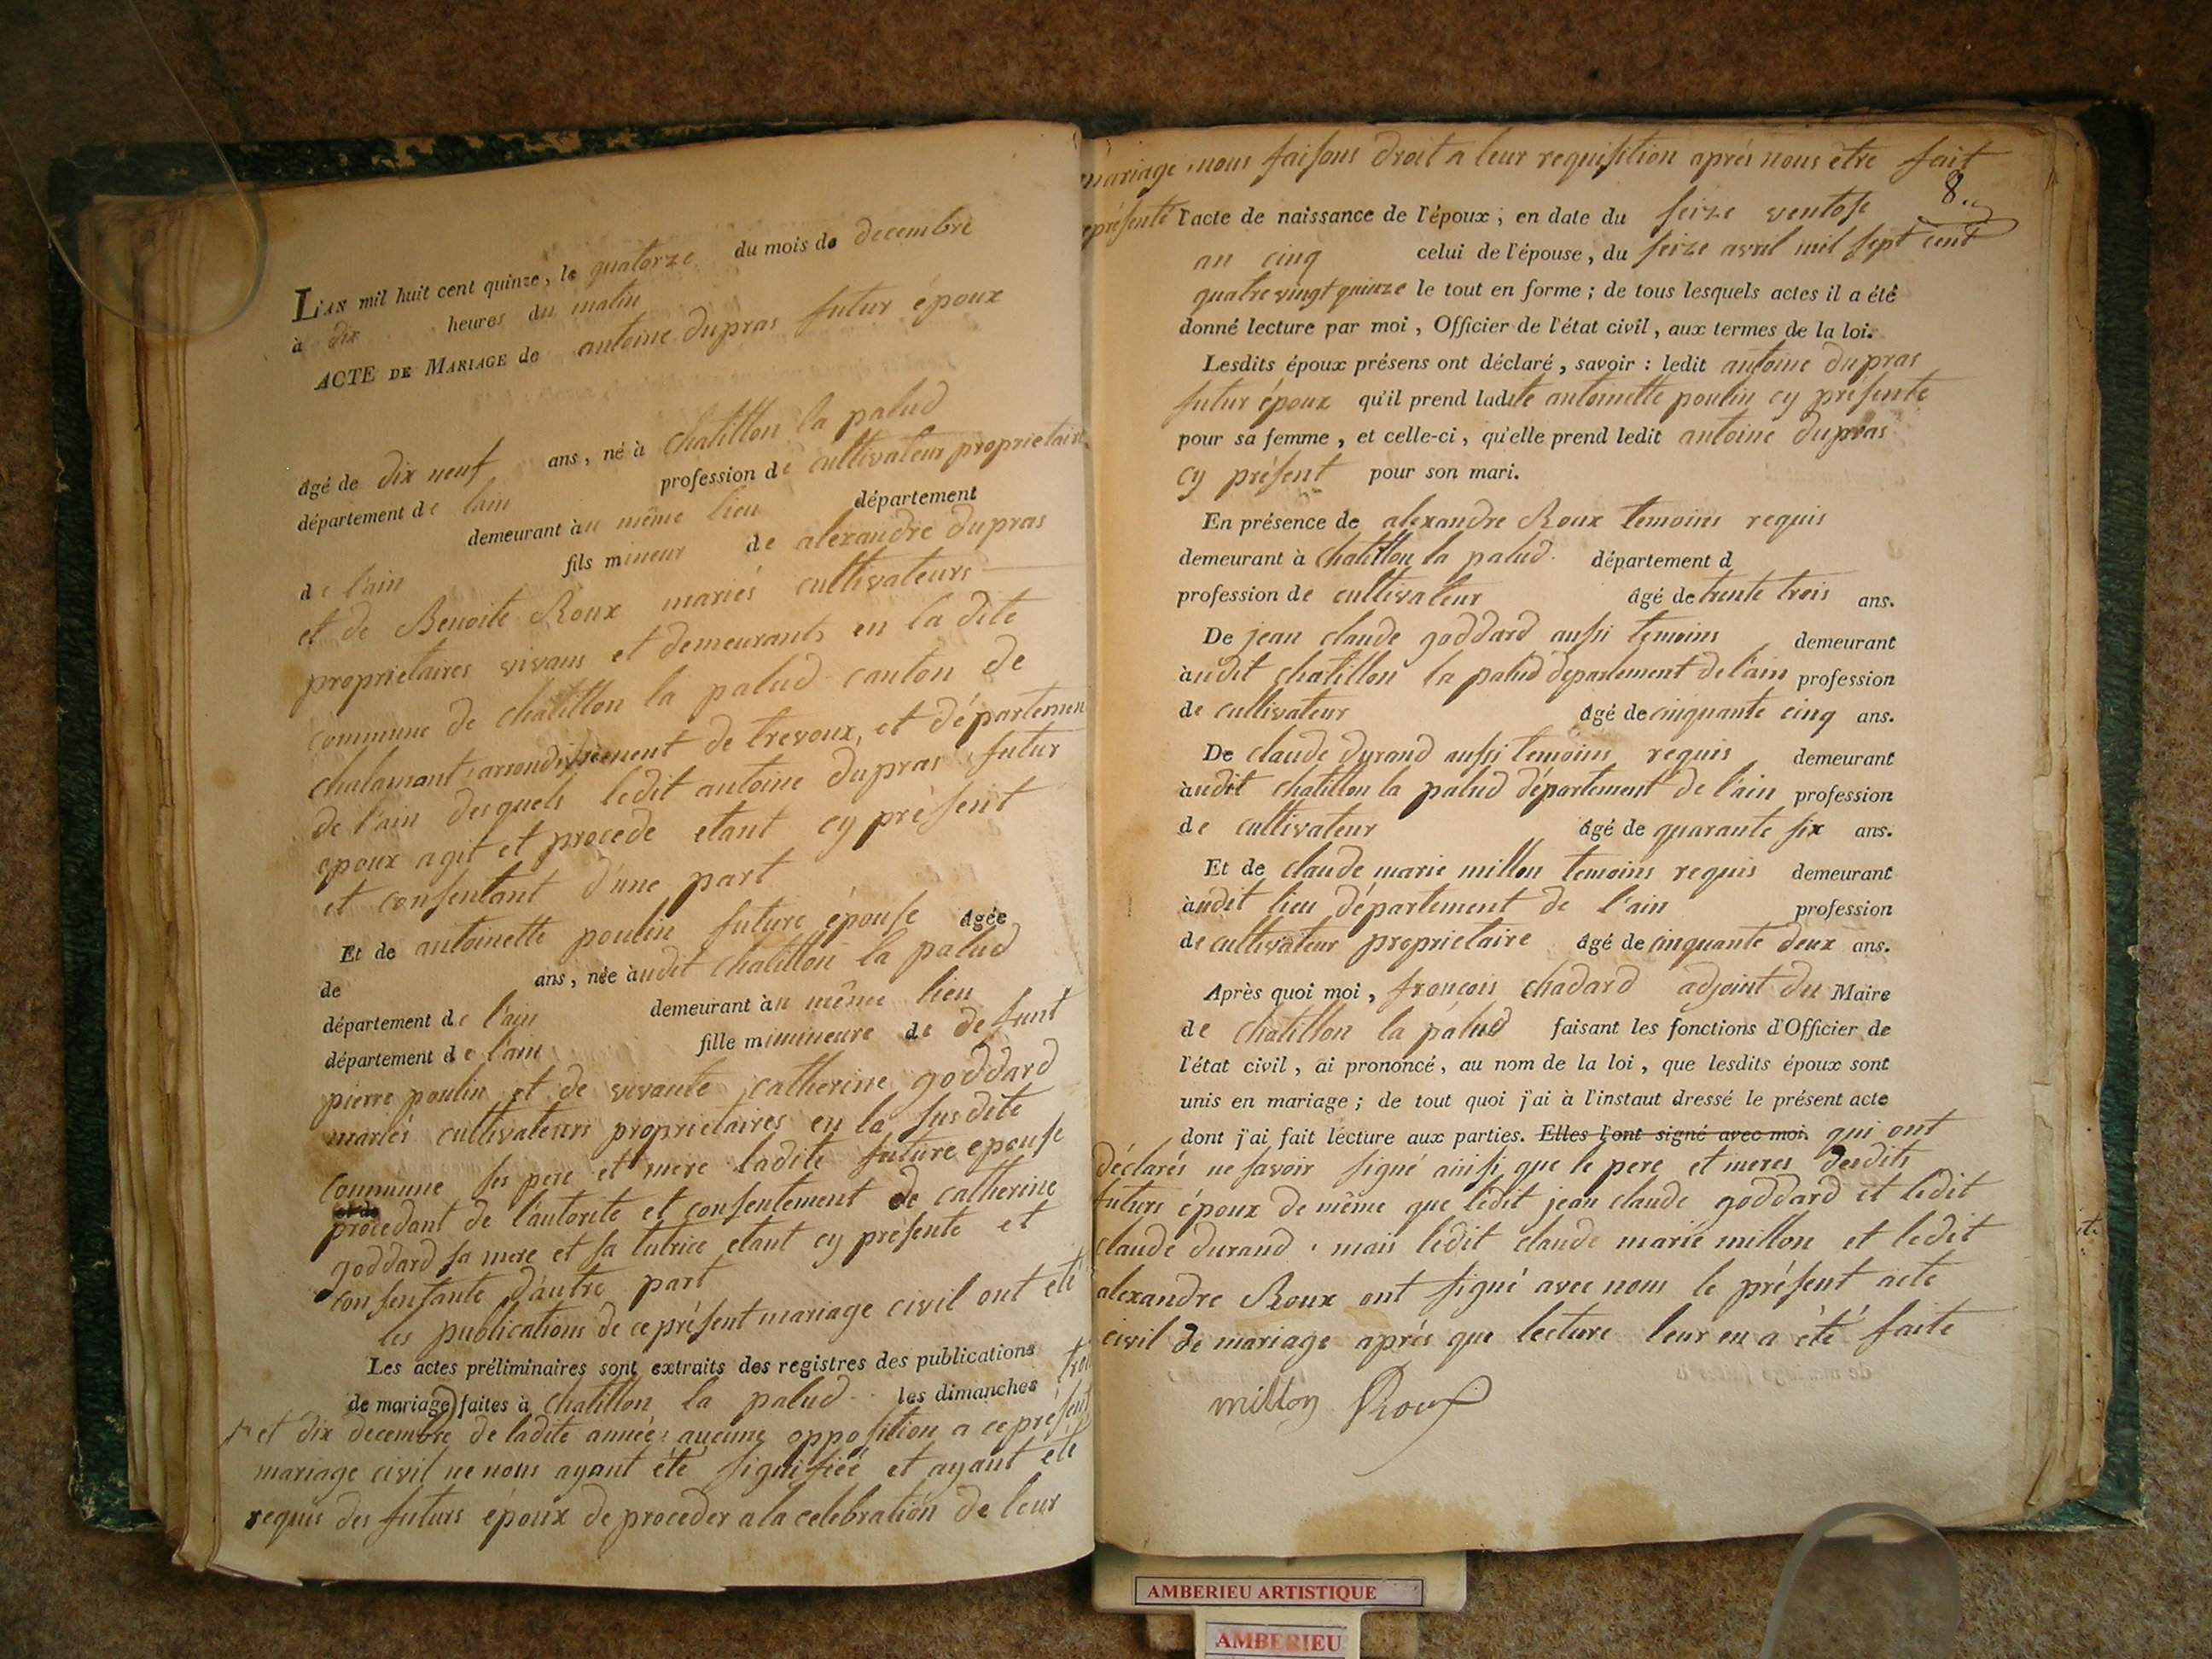 L'AN mil huit cent quinze, le quatorze du mois de decembre
à dix heures du matin
ACTE DE MARIAGE de antoine dupras futur époux
âgé de dix neuf ans, né à chatillon la palud
département de lain profession de cultivateur proprietaire
demeurant àu même lieu département
de l'ain fils mineur de alexandre dupras
et de Benoite Roux mariés cultivateurs
proprietaires vivans et demeurants en la dite
commune de chatillon la palud canton de
chalamont, arrondissement de trevoux, et départemen
de l'ain desquels ledit antoine dupras futur
epoux agit et procede etant cy présent
et consentant d'une part
Et de antoinette poulin future épouse âgée
de ans, née àudit chatillon la palud
département de l'ain demeurant àu même lieu
département de l'ain fille mimineure de defunt
pierre poulin et de vivante catherine goddard
mariés cultivateurs proprietaires en la susdite
commune ses pere et mere ladite future epouse
procedant de l'autorité et consentement de catherine
goddard sa mere et sa tutrice etant cy présente et
consentante d'autre part
les publications de ce présent mariage civil ont eté
Les actes préliminaires sont extraits des registres des publications
de mariage) faites à chatillon la palud les dimanches
et dix decembre de ladite année; aucune opposition a ce présent
mariage civil ne nous ayant été signifiée et ayant eté
requis des futurs époux de proceder a la celebration de leur
mariage, nous faisons droit a leur requisition aprés nous être fait
8.
représenté l'acte de naissance de l'époux; en date du seize ventose
an cinq celui de l'épouse, du seize avril mil sept cent
quatre vingt quinze le tout en forme; de tous lesquels actes il a été
donné lecture par moi, Officier de l'état civil, aux termes de la loi.
Lesdits époux présens ont déclaré, savoir: ledit antoine dupras
futur époux qu'il prend ladite antoinette poulin cy présente
pour sa femme, et celle-ci, qu'elle prend ledit antoine dupras
cy présent pour son mari.
En présence de alexandre Roux temoins requis
demeurant à chatillon la palud. département d
profession de cultivateur âgé de trente trois ans.
De jean claude goddard aussi temoins demeurant
àudit chatillon la palud departement de l'ain profession
de cultivateur âgé de cinquante cinq ans.
De claude durand aussi temoins requis demeurant
àudit chatillon la palud département de l'ain profession
de cultivateur âgé de quarante six ans.
Et de claude marie millon temoins requis demeurant
àudit lieu département de l'ain profession
de cultivateur proprietaire âgé de cinquante deux ans.
Après quoi moi, françois chadard adjoint du Maire
de chatillon la palud faisant les fonctions d'Officier de
l'état civil, ai prononcé, au nom de la loi, que lesdits époux sont
unis en mariage; de tout quoi j'ai à l'instaut dressé le présent acte
dont j'ai fait lecture aux parties. Elles l'ont signé avec moi. qui ont
déclarés ne savoir signé ainsi que le pere et meres desdits
futurs époux de même que ledit jean claude goddard et ledit
claude durand, mais ledit claude marie millon et ledit
alexandre Roux ont signé avec nous le présent acte
civil de mariage aprés que lecture leur en a été faite
millon Roux
AMBERIEU ARTISTIQUE
AMBERIEU